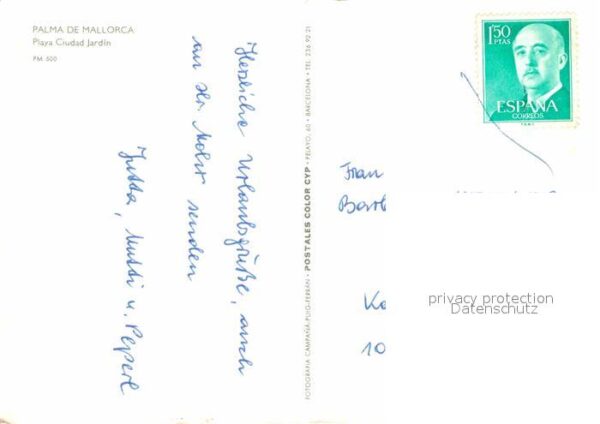 PALMA DE MALLORCA
Playa Ciudad Jardín
PM 500
Herzliche Urlaubsgrüße, auch
an Hr. Mohr senden
Jutta, Mutti u. Peperl
FOTOGRAFIA CAMPAÑÁ-PUIG-FERRAN - POSTALES COLOR CYP - PELAYO, 60 - BARCELONA - TEL. 236 92 21
1'50
PTAS
ESPAÑA
CORREOS
Frau
Barb
Ko
10
privacy protection
Datenschutz